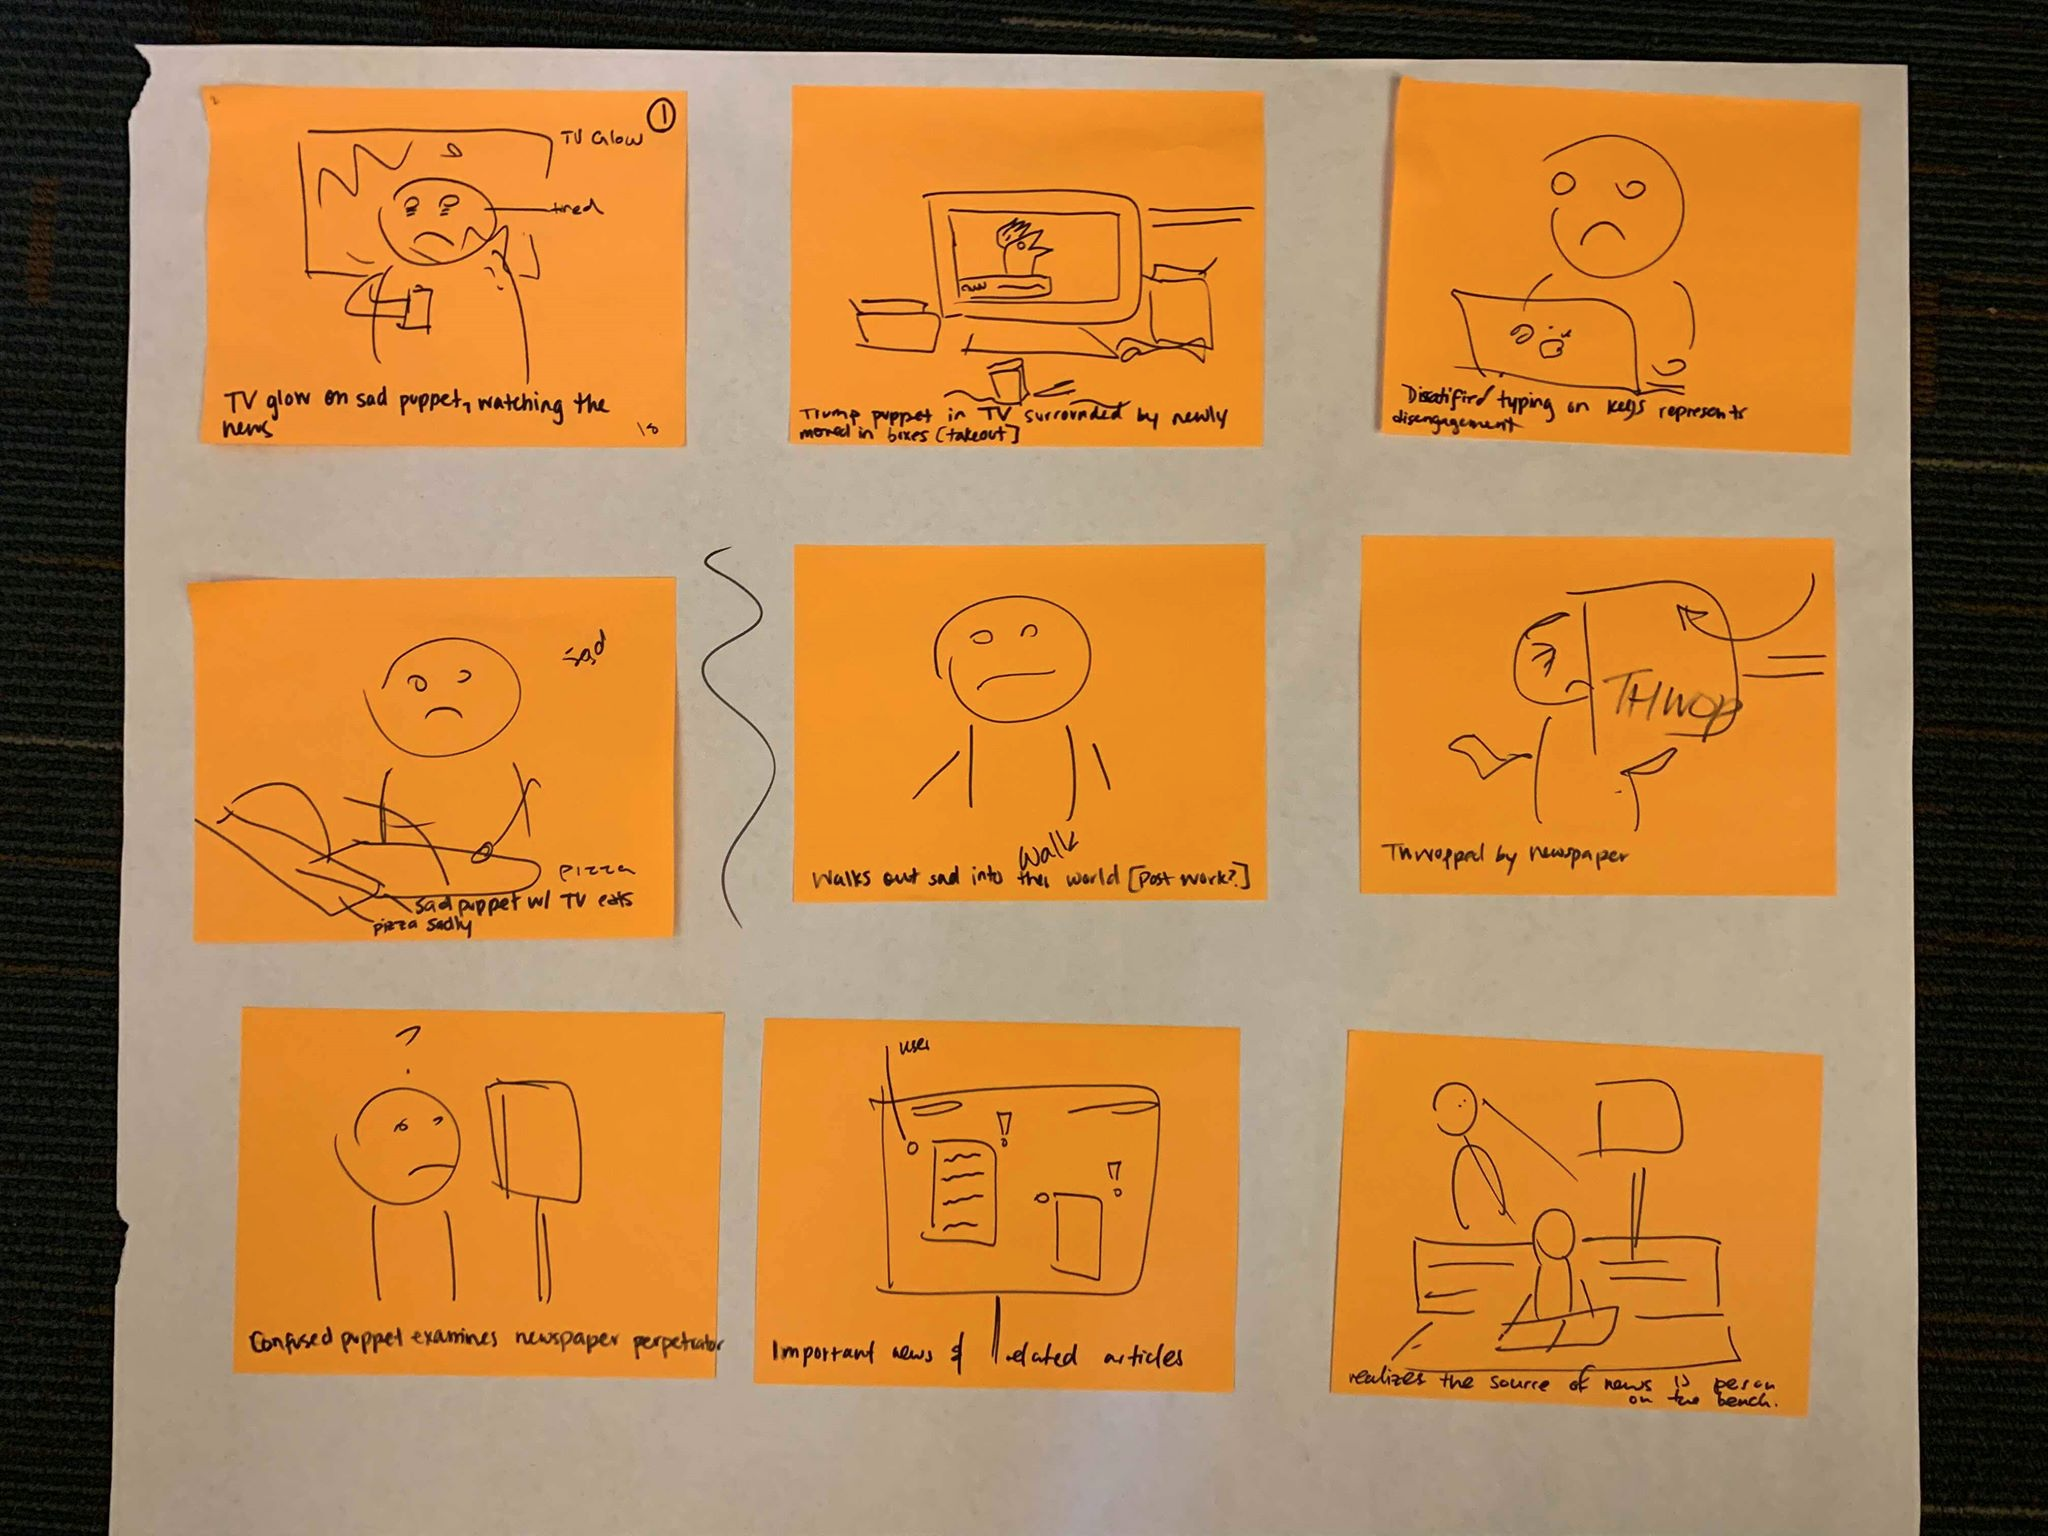 1
TV Glow
tired
TV glow on sad puppet, watching the
news
18
Trump puppet in TV surrounded by newly
moved in boxes [takeout]
Disatified typing on keys represents
disengagement
sad
pizza
sad puppet w/ TV eats
pizza sadly
walk
Walks out sad into the world [Post work?]
THWOP
Thwopped by newspaper
?
Confused puppet examines newspaper perpetrator
user
!
!
Important news & related articles
realizes the source of news is person
on the bench.